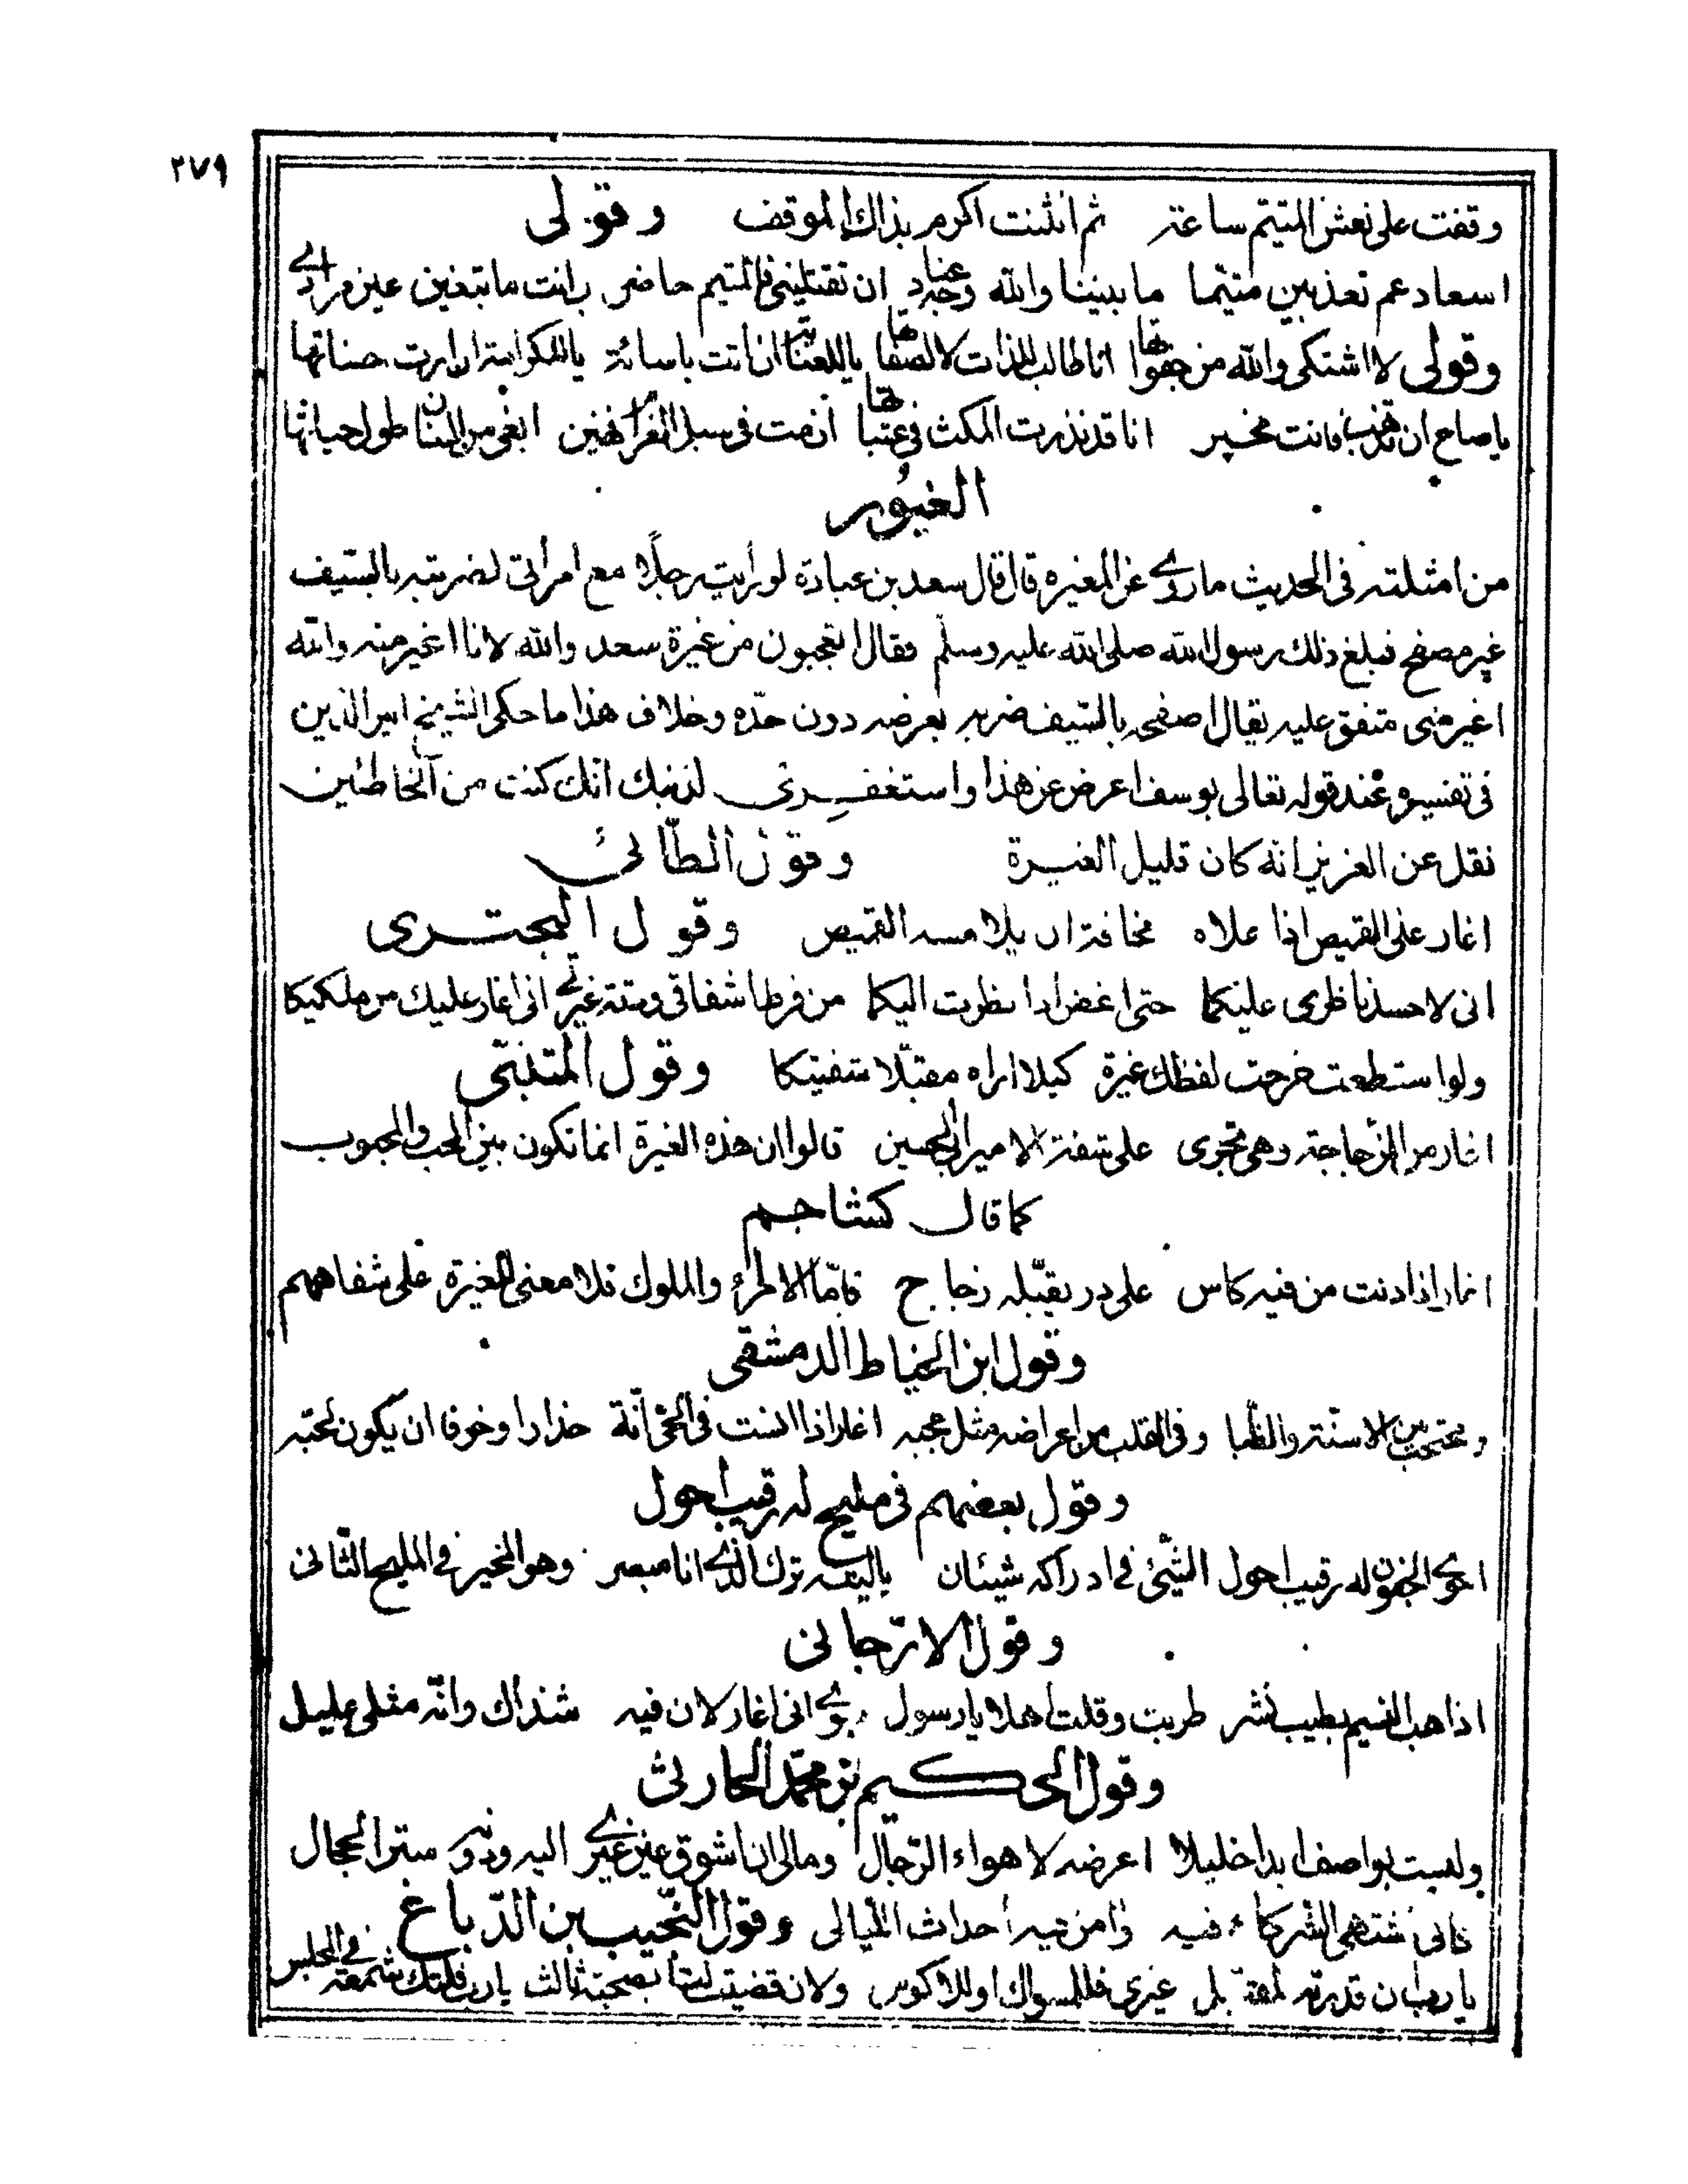 ٢٧٩
وقفت على نعش المتيم ساعة ثم انثنت اكرم بذاك الموقف وقولى
اسعاد عم تعذبين متيما ما بيننا والله وجد عناد ان تقتلينى فالمتيم حاضر بل انت ما تبغين عين مرادى
وقولى لا اشتكى والله من جفواتها انا طالب للذات لا لصفاتها ياللعنا ان اتت باسائة ياللكرامة ان ارت حسناتها
يا صاح ان تذهب فانت مخير انا قد نذرت المكث فى عتباتها ان مت فى سبل الغرام فهنن ابغى من المنان طول حياتها
الغيور
من امثلته فى الحديث ما روى عن المغيره قال قال سعد بن عبادة لو رأيت رجلًا مع امرأتى لضربته بالسيف
غير مصفح فبلغ ذلك رسول الله صلى الله عليه وسلم فقال اتعجبون من غيرة سعد والله لانا اغير منه والله
اغير منى متفق عليه يقال اصفحه بالسيف ضربه بعرضه دون حدّه وخلاف هذا ما حكى الشيخ اثير الدين
فى تفسيره عند قوله تعالى يوسف اعرض عن هذا واستغفرى لذنبك انك كنت من الخاطئين
نقل عن العزيز انه كان قليل الغيرة وقول الطائى
اغار على القميص اذا علاه مخافة ان يلامسه القميص وقول البحترى
انى لاحسد ناظرى عليكا حتى اغض اذا نظرت اليكا من فرط اشفاقى ورقة غيرتى انى اغار عليك من ملكيكا
ولو استطعت جرحت لفظك غيرة كيلا اراه مقبّلا شفتيكا وقول المتنبّى
اغار من الزجاجة وهى تجرى على شفة الامير ابى الحسين قالوا ان هذه الغيرة انما تكون بين المحب والمحبوب
كما قال كشاجم
اغار اذا دنت من فيه كاس على در يقبّله زجاج فامّا الامراء والملوك فلا معنى للغيرة على شفاههم
وقول ابن الخياط الدمشقى
ومحتجب بين الاسنة والظبا وفى القلب من اعراضه مثل حجبه اغار اذا انست فى الحى انّة حذارا وخوفا ان يكون لحبّه
وقول بعضهم فى مليح له رقيب احول
احوى الجفون له رقيب احول الشئ فى ادراكه شيئان ياليته ترك الذى انا مبصر وهو المخير فى المليح الثانى
وقول الارّجانى
اذا هب النسيم بطيب نشر طربت وقلت اهلا يا رسول سوى انى اغار لان فيه شذاك وانّه مثلى عليل
وقول الحكيم بن محمّد الحارثى
ولست بواصف ابدا خليلا اعرضه لاهواء الرّجال ومالى ان اشوق عين غيرى اليه ودونه ستر الحجال
كانى اشتهى الشركاء فيه وامن فيه أحداث الليالى وقول النّجيب بن الدّباغ
يا رب ان قدرته لمقبل غيرى فللمسواك او للاكوس ولان قضيت لنا بصحبة ثالث يا رب فلتك شمعة فى المجلس